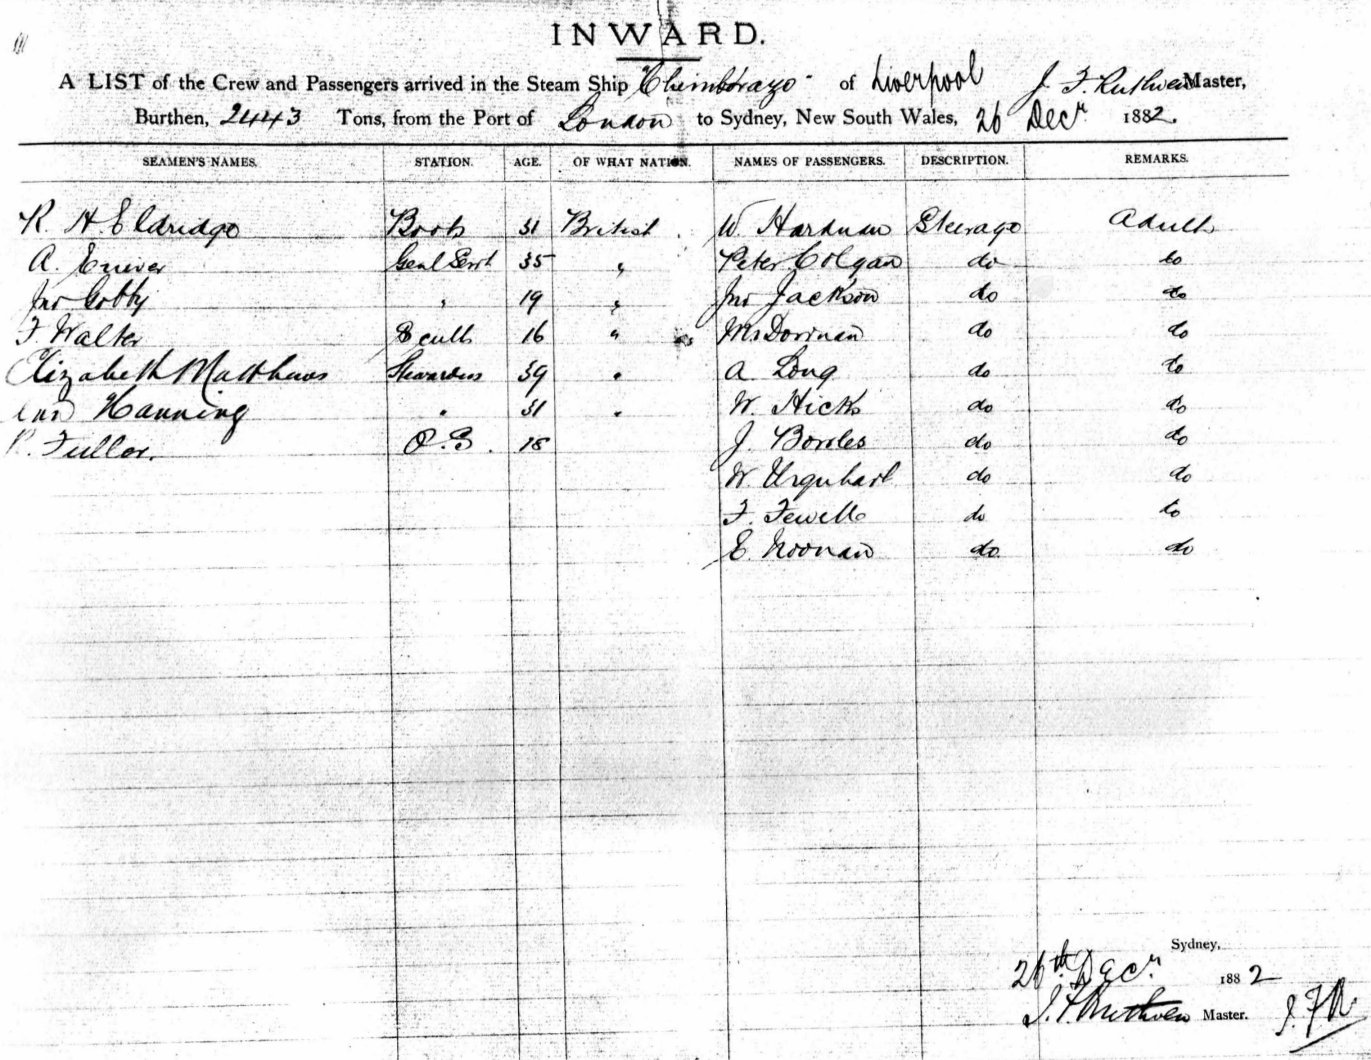 INWARD.
A LIST of the Crew and Passengers arrived in the Steam Ship "Chimborazo" of Liverpool J. F. Ruthven Master,
Burthen, 2443 Tons, from the Port of London to Sydney, New South Wales, 26 Decr 1882.
SEAMEN'S NAMES. STATION. AGE. OF WHAT NATION. NAMES OF PASSENGERS. DESCRIPTION. REMARKS.
R. H. Eldridge Boots 31 British W. Hardman Steerage Adult
A. Genl Servt 35 " Peter Colgan do do
Jno Gobby " 19 " Jno Jackson do do
F. Walter Scull 16 " Dornan do do
Elizabeth Matthews Stewardess 39 " A Long do do
Hanning " 31 " W. Hicks do do
R. Fuller. O.S. 18 J. Bowles do do
W Urquhart do do
F. Fewell do do
E. Noonan do do
Sydney,
26th Decr. 1882
J. F. Ruthven Master. J.F.R